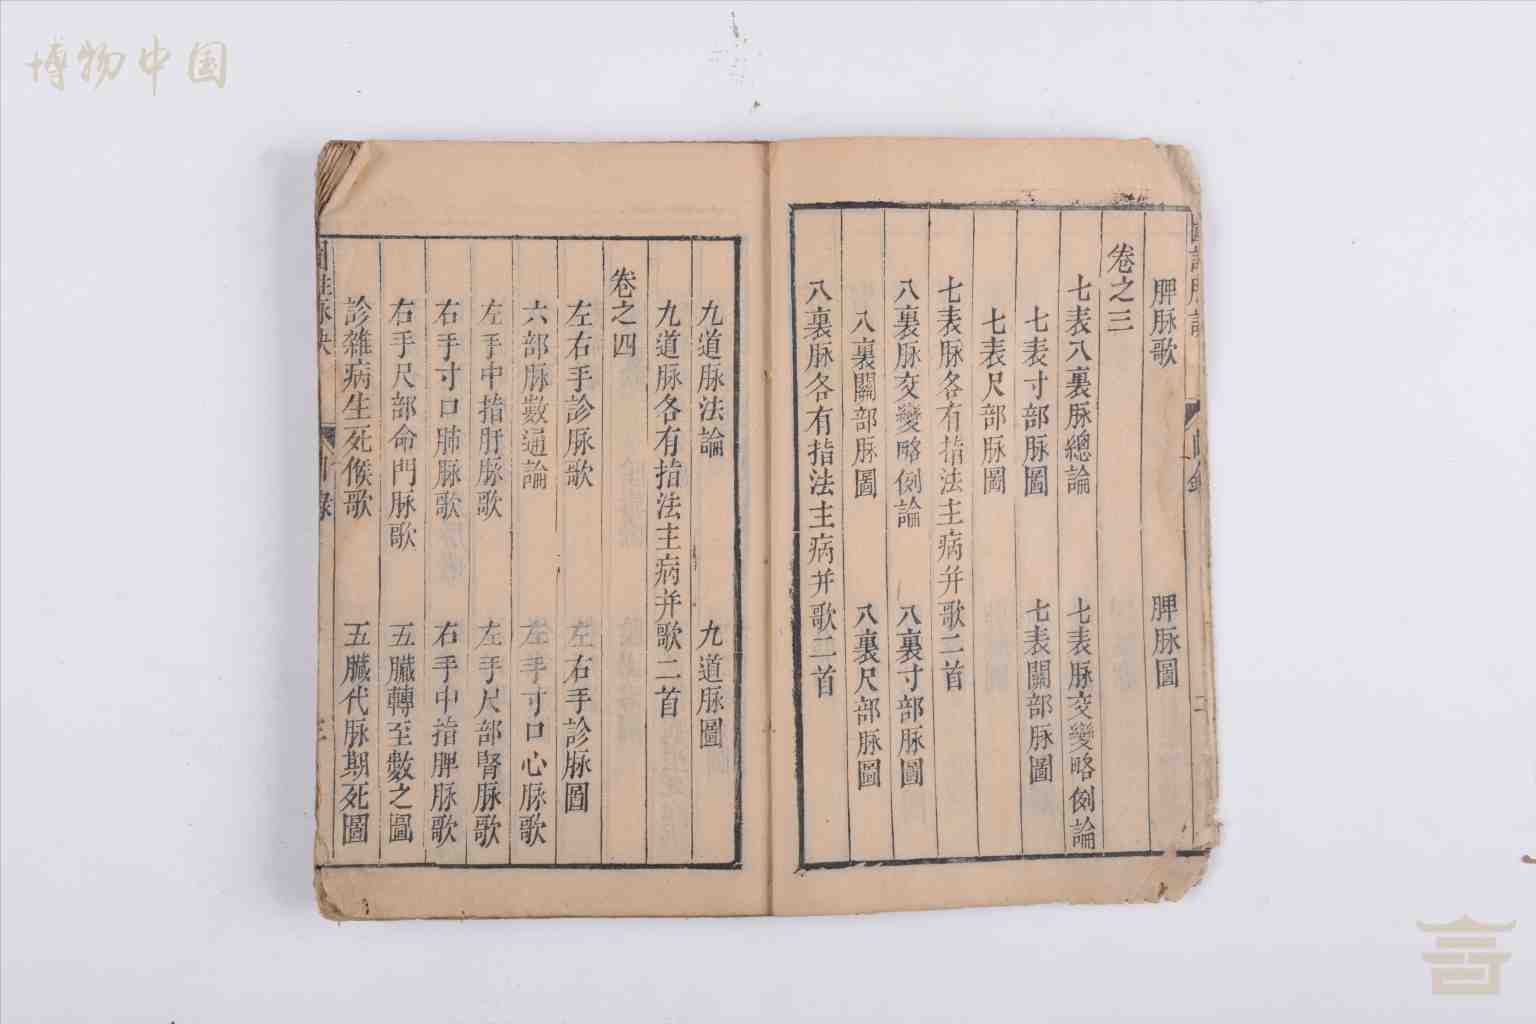 博物中国
脾脉歌 脾脉圖
卷之三
七表八裏脉總論 七表脉交變略例論
七表寸部脉圖 七表關部脉圖
七表尺部脉圖
七表脉各有指法主病并歌二首
八裏脉交變略例論 八裏寸部脉圖
八裏關部脉圖 八裏尺部脉圖
八裏脉各有指法主病并歌二首
九道脉法論 九道脉圖
九道脉各有指法主病并歌二首
卷之四
左右手診脉歌 左右手診脉圖
六部脉數通論 左手寸口心脉歌
左手中指肝脉歌 左手尺部腎脉歌
右手寸口肺脉歌 右手中指脾脉歌
右手尺部命門脉歌 五臟轉至數之圖
診雜病生死候歌 五臟代脉期死圖